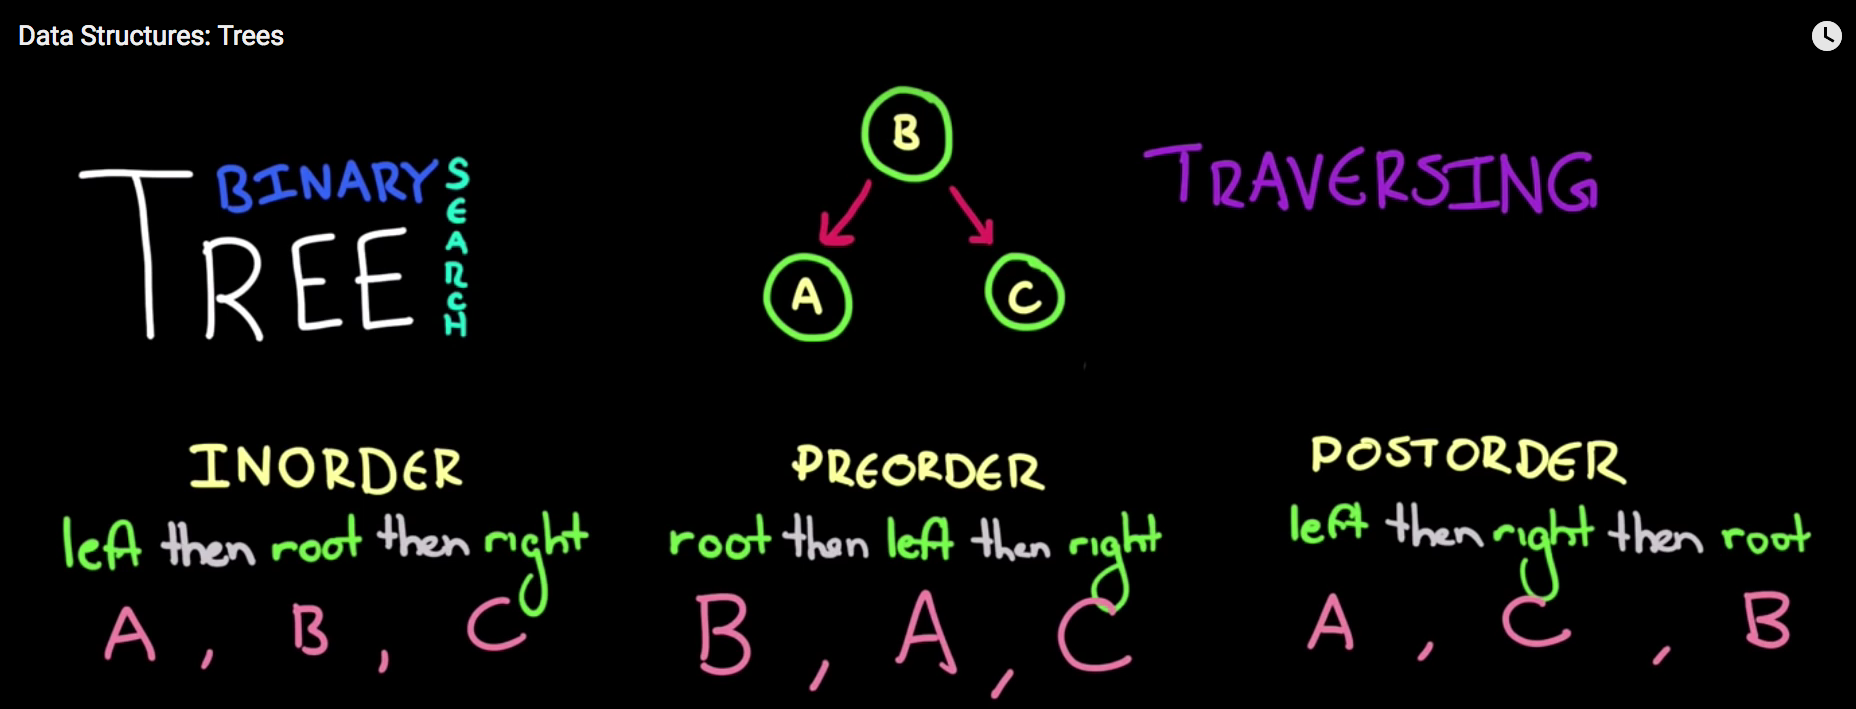 Data Structures: Trees
BINARY
SEARCH
TREE
B
A
C
TRAVERSING
INORDER
left then root then right
A , B , C
PREORDER
root then left then right
B , A , C
POSTORDER
left then right then root
A , C , B